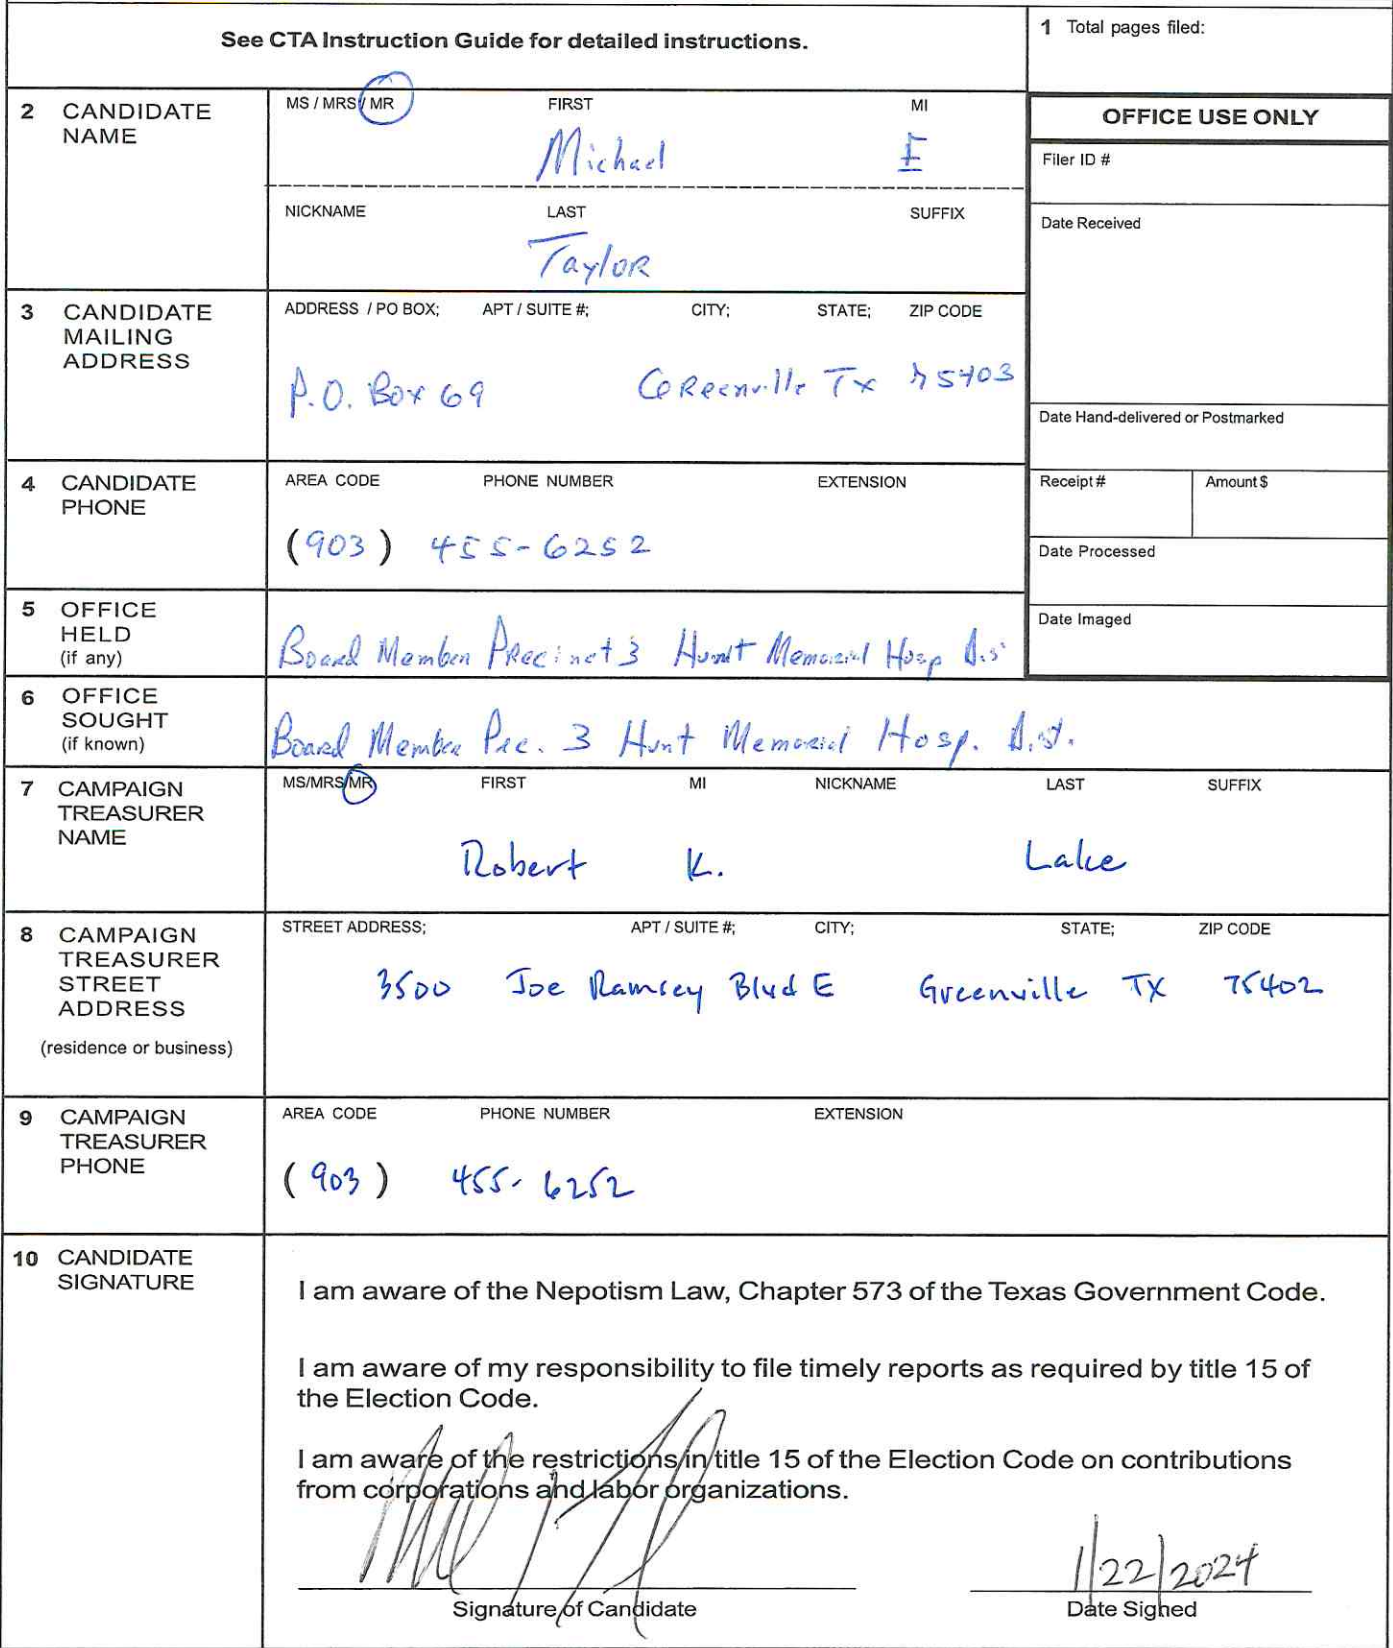 See CTA Instruction Guide for detailed instructions.
1 Total pages filed:
2 CANDIDATE NAME
MS / MRS / MR FIRST MI
Michael E
NICKNAME LAST SUFFIX
Taylor
OFFICE USE ONLY
Filer ID #
Date Received
3 CANDIDATE MAILING ADDRESS
ADDRESS / PO BOX; APT / SUITE #; CITY; STATE; ZIP CODE
P.O. Box 69 Greenville Tx 75403
Date Hand-delivered or Postmarked
4 CANDIDATE PHONE
AREA CODE PHONE NUMBER EXTENSION
(903) 455-6252
Receipt # Amount $
Date Processed
Date Imaged
5 OFFICE HELD (if any)
Board Member Precinct 3 Hunt Memorial Hosp Dis
6 OFFICE SOUGHT (if known)
Board Member Prec. 3 Hunt Memorial Hosp. Dist.
7 CAMPAIGN TREASURER NAME
MS/MRS/MR FIRST MI NICKNAME LAST SUFFIX
Robert K. Lake
8 CAMPAIGN TREASURER STREET ADDRESS
(residence or business)
STREET ADDRESS; APT / SUITE #; CITY; STATE; ZIP CODE
3500 Joe Ramsey Blvd E Greenville TX 75402
9 CAMPAIGN TREASURER PHONE
AREA CODE PHONE NUMBER EXTENSION
(903) 455-6252
10 CANDIDATE SIGNATURE
I am aware of the Nepotism Law, Chapter 573 of the Texas Government Code.
I am aware of my responsibility to file timely reports as required by title 15 of
the Election Code.
I am aware of the restrictions in title 15 of the Election Code on contributions
from corporations and labor organizations.
1/22/2024
Signature of Candidate Date Signed